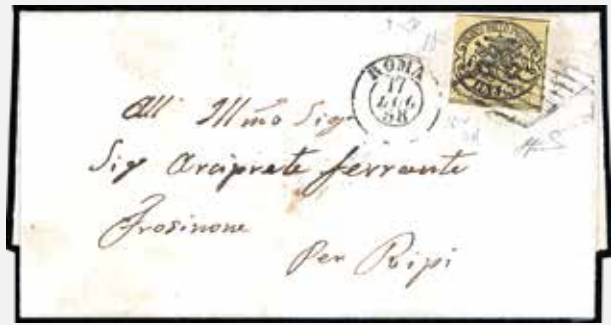 ROMA
17
LUG
58
All' Illmo Sig.
Sig Arciprete Ferrante
Frosinone
Per Ripi